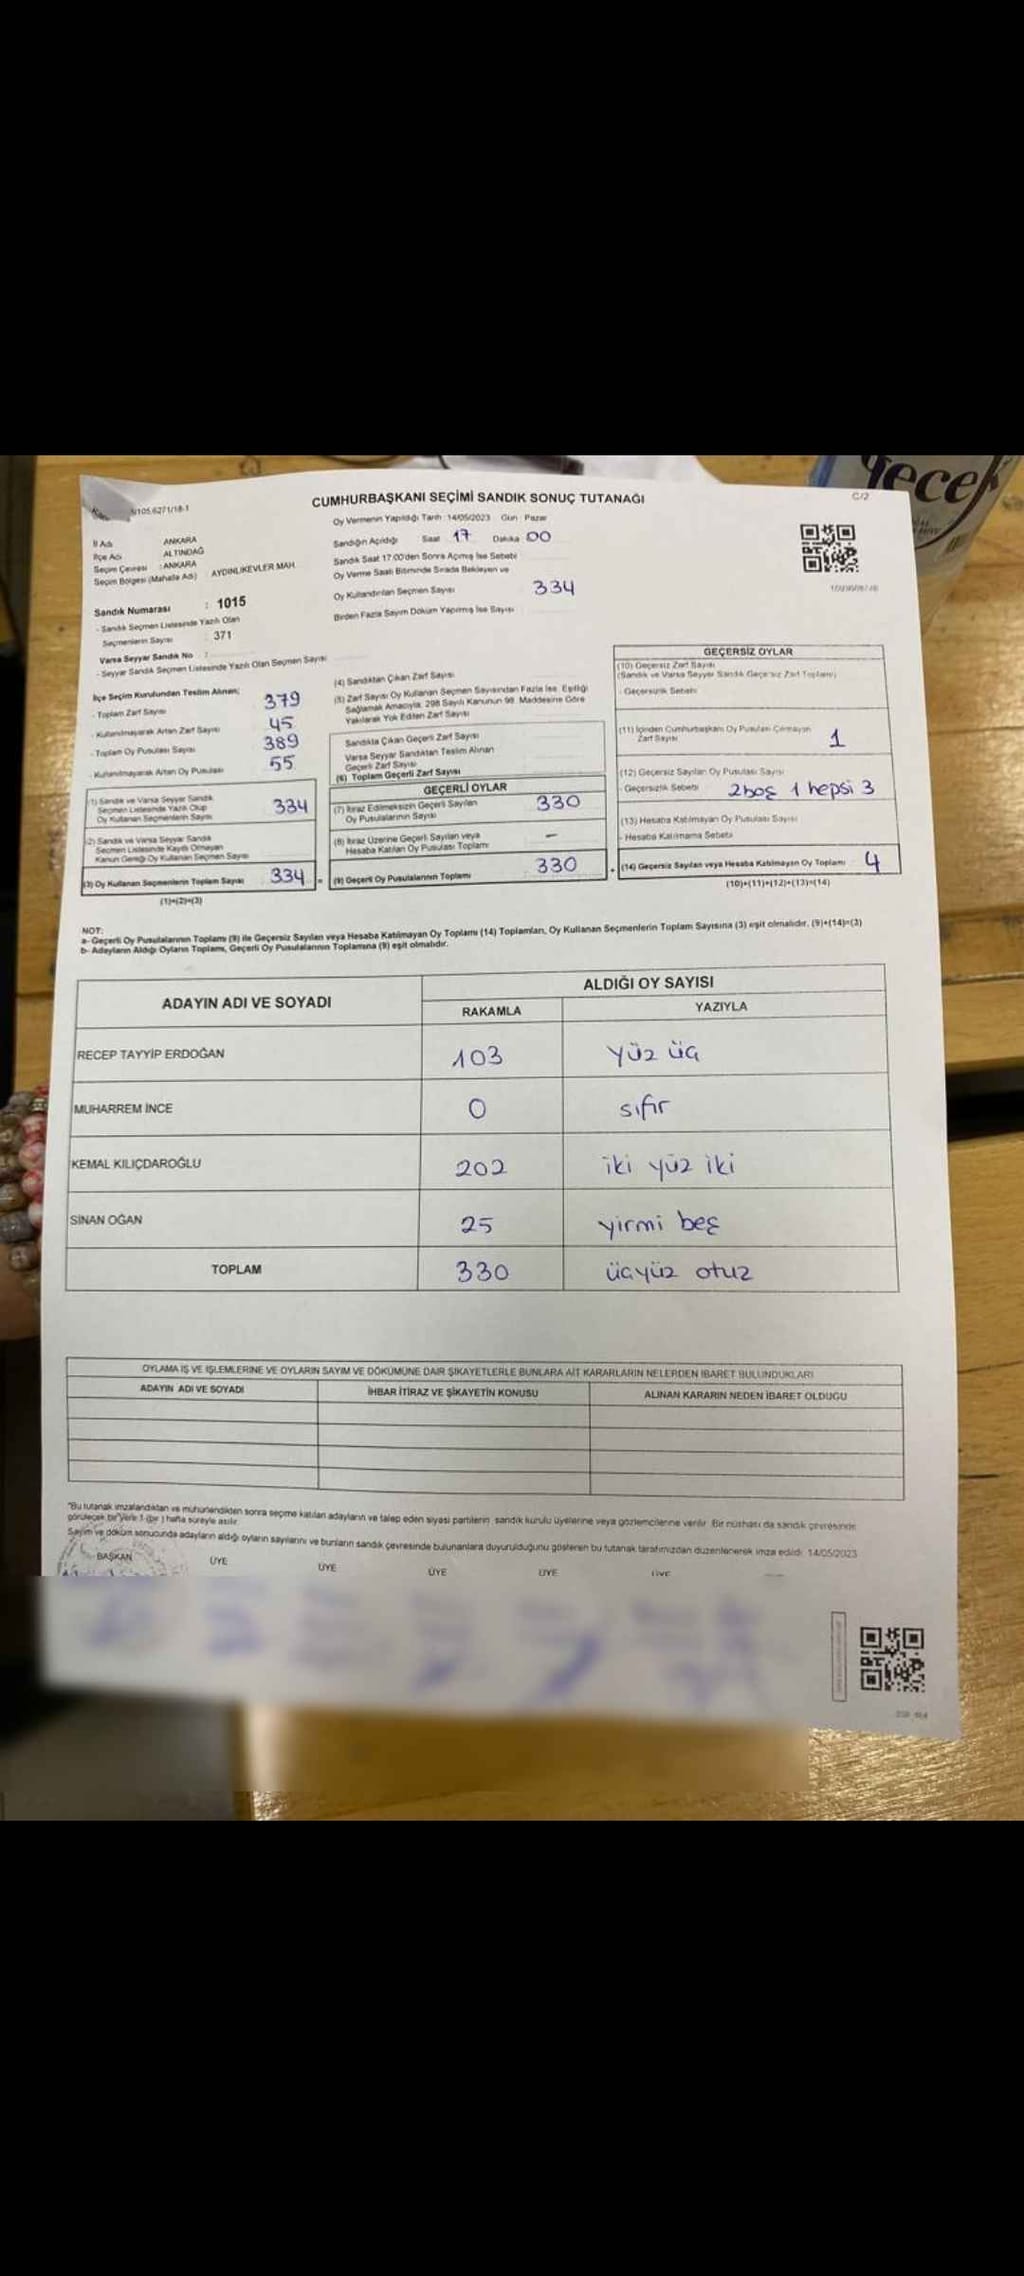 Gecek
CUMHURBAŞKANI SEÇİMİ SANDIK SONUÇ TUTANAĞI
C/2
İl Adı ANKARA
İlçe Adı ALTINDAĞ
Seçim Çevresi : ANKARA
Seçim Bölgesi (Mahalle Adı) : AYDINLIKEVLER MAH.
Sandık Numarası : 1015
- Sandık Seçmen Listesinde Yazılı Olan
Seçmenlerin Sayısı : 371
Varsa Seyyar Sandık No :
- Seyyar Sandık Seçmen Listesinde Yazılı Olan Seçmen Sayısı
Oy Vermenin Yapıldığı Tarih : 14/05/2023 Gün : Pazar
Sandığın Açıldığı Saat 17 Dakika 00
Sandık Saat 17.00'den Sonra Açılmış İse Sebebi
Oy Verme Saati Bitiminde Sırada Bekleyen ve
Oy Kullandırılan Seçmen Sayısı 334
Birden Fazla Sayım Döküm Yapılmış İse Sayısı
İlçe Seçim Kurulundan Teslim Alınan;
- Toplam Zarf Sayısı 379
- Kullanılmayarak Artan Zarf Sayısı 45
- Toplam Oy Pusulası Sayısı 389
- Kullanılmayarak Artan Oy Pusulası 55
(1) Sandık ve Varsa Seyyar Sandık
Seçmen Listesinde Yazılı Olup
Oy Kullanan Seçmenlerin Sayısı 334
(2) Sandık ve Varsa Seyyar Sandık
Seçmen Listesinde Kayıtlı Olmayan
Kanun Gereği Oy Kullanan Seçmen Sayısı
(3) Oy Kullanan Seçmenlerin Toplam Sayısı 334 =
(1)+(2)=(3)
(4) Sandıktan Çıkan Zarf Sayısı
(5) Zarf Sayısı Oy Kullanan Seçmen Sayısından Fazla İse, Eşitliği
Sağlamak Amacıyla, 298 Sayılı Kanunun 98. Maddesine Göre
Yakılarak Yok Edilen Zarf Sayısı
Sandıkta Çıkan Geçerli Zarf Sayısı
Varsa Seyyar Sandıktan Teslim Alınan
Geçerli Zarf Sayısı
(6) Toplam Geçerli Zarf Sayısı
GEÇERLİ OYLAR
(7) İtiraz Edilmeksizin Geçerli Sayılan
Oy Pusulalarının Sayısı 330
(8) İtiraz Üzerine Geçerli Sayılan veya
Hesaba Katılan Oy Pusulası Toplamı -
(9) Geçerli Oy Pusulalarının Toplamı 330 +
GEÇERSİZ OYLAR
(10) Geçersiz Zarf Sayısı
(Sandık ve Varsa Seyyar Sandık Geçersiz Zarf Toplamı)
- Geçersizlik Sebebi
(11) İçinden Cumhurbaşkanı Oy Pusulası Çıkmayan
Zarf Sayısı 1
(12) Geçersiz Sayılan Oy Pusulası Sayısı
- Geçersizlik Sebebi 2boş 1 hepsi 3
(13) Hesaba Katılmayan Oy Pusulası Sayısı
- Hesaba Katılmama Sebebi
(14) Geçersiz Sayılan veya Hesaba Katılmayan Oy Toplamı 4
(10)+(11)+(12)+(13)=(14)
NOT:
a- Geçerli Oy Pusulalarının Toplamı (9) ile Geçersiz Sayılan veya Hesaba Katılmayan Oy Toplamı (14) Toplamları, Oy Kullanan Seçmenlerin Toplam Sayısına (3) eşit olmalıdır. (9)+(14)=(3)
b- Adayların Aldığı Oyların Toplamı, Geçerli Oy Pusulalarının Toplamına (9) eşit olmalıdır.
ADAYIN ADI VE SOYADI ALDIĞI OY SAYISI
RAKAMLA YAZIYLA
RECEP TAYYİP ERDOĞAN 103 yüz üç
MUHARREM İNCE 0 sıfır
KEMAL KILIÇDAROĞLU 202 iki yüz iki
SİNAN OĞAN 25 yirmi beş
TOPLAM 330 üçyüz otuz
OYLAMA İŞ VE İŞLEMLERİNE VE OYLARIN SAYIM VE DÖKÜMÜNE DAİR ŞİKAYETLERLE BUNLARA AİT KARARLARIN NELERDEN İBARET BULUNDUKLARI
ADAYIN ADI VE SOYADI İHBAR İTİRAZ VE ŞİKAYETİN KONUSU ALINAN KARARIN NEDEN İBARET OLDUĞU
*Bu tutanak imzalandıktan ve mühürlendikten sonra seçime katılan adayların ve talep eden siyasi partilerin sandık kurulu üyelerine veya gözlemcilerine verilir. Bir nüshası da sandık çevresinde
görülecek bir yere 1 (bir) hafta süreyle asılır.
Sayım ve döküm sonucunda adayların aldığı oyların sayılarını ve bunların sandık çevresinde bulunanlara duyurulduğunu gösteren bu tutanak tarafımızdan düzenlenerek imza edildi. 14/05/2023
BAŞKAN ÜYE ÜYE ÜYE ÜYE ÜYE